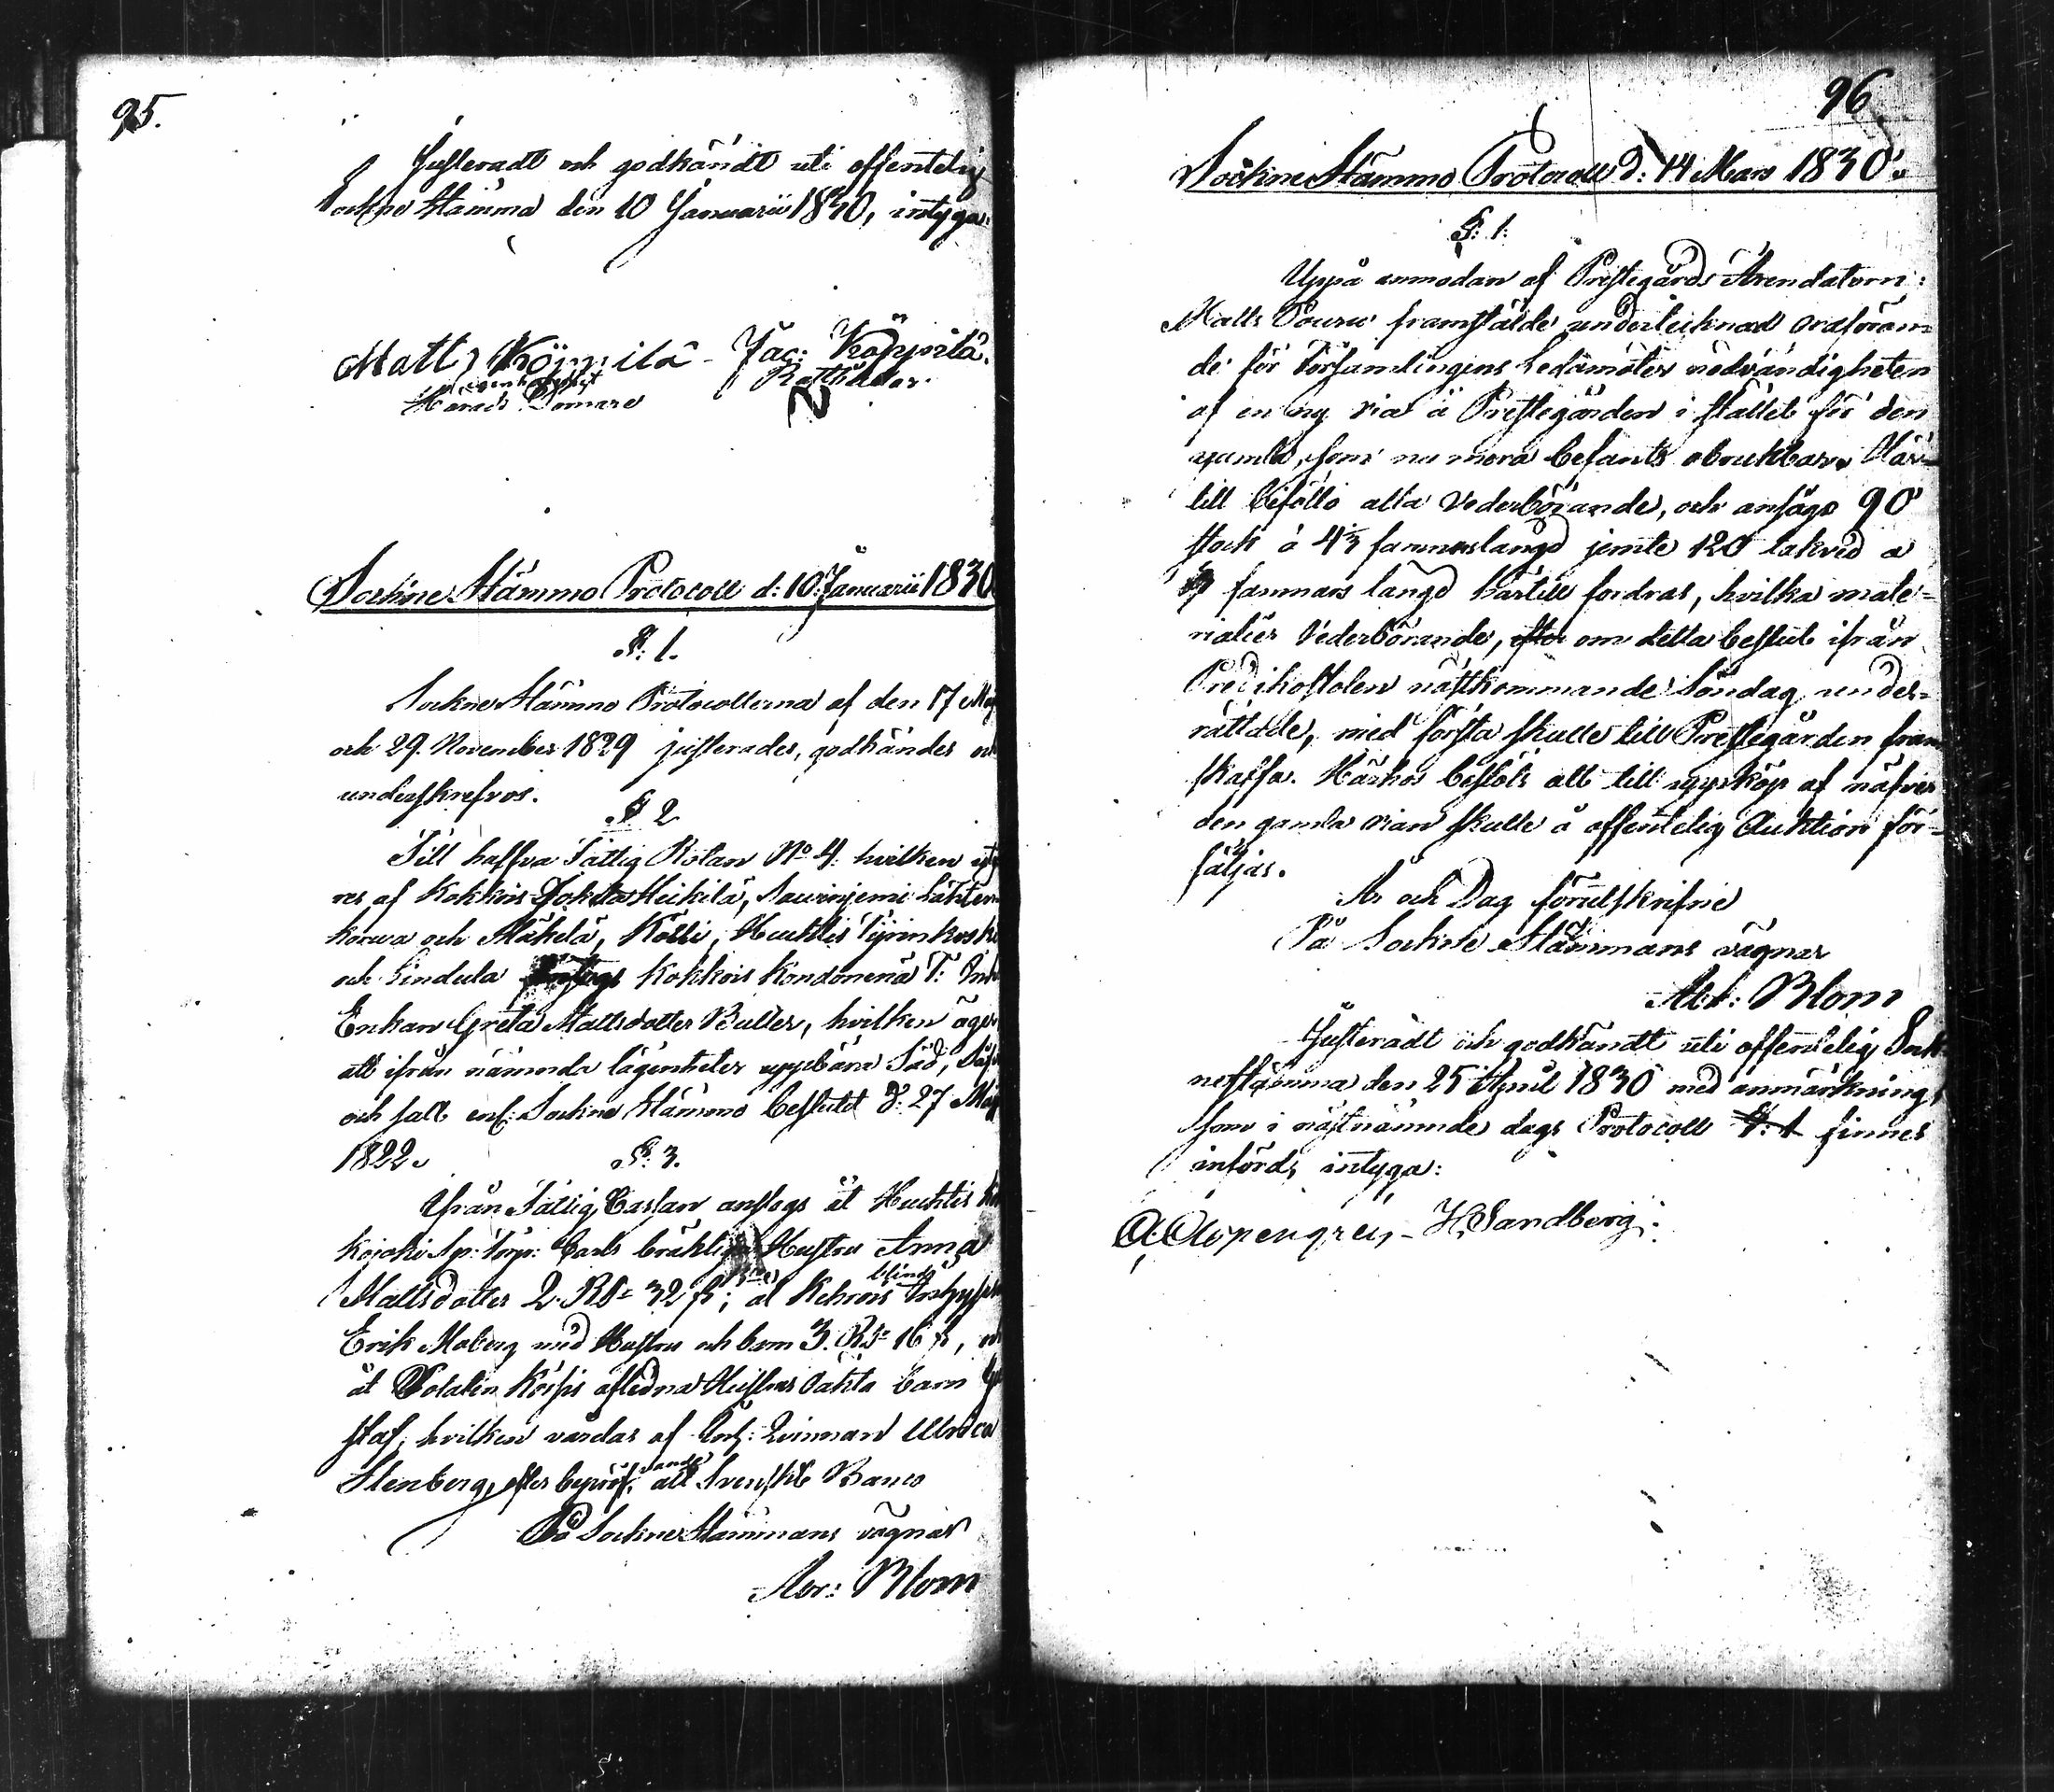 95.
Justeradt och godkändt uti offentelig
Sockne Stämma den 10 Januarii 1830, intyga:
Matts Köppilä - Jac: Köppilä.
egenhändigt
Härads Domare Rotthållar.
Sockne Stämmo Protocoll d: 10 Januarii 1830
§: 1.
Sockne Stämmo Protocollerna af den 17 Maj
och 29. November 1829 justerades, godkändes och
underskrefvos.
§ 2
Till haffva Fattig Rotan No 4. hvilken
res af Kokkois Heikilä, Sauvinjemi Lähten
korva och Mäkelä, Kölli, Huchtis Tyrinkoski
och Lindula Kokkois Kondonenä T: Inh
Enkan Greta Mattsdotter Buller, hvilken äger
att ifrån nämnda lägenheter uppbära Säd,
och salt enl: Sockne Stämmo beslutet d: 27 Maj
1822. §: 3.
Ifrån Fattig Cassan anslogs åt Huchtis
Kojoki Sp: Torp: Carls bräkliga Hustru Anna
Mattsdotter 2. Rd 32 s; åt Kehrois blinde Inhyses
Erik Moberg med Hustru och barn 3. Rd 16 s, och
åt Soldaten Körpis aflednа Hustrus oäkta barn
staf, hvilken vårdas af Inh: Qvinnan Ulrica
Stenberg, efter bepröfvande allt Svenskt Banco
På Sockne Stämmans vägnar
Abr: Blom
96
Sockne Stämmo Protocoll d: 14 Mars 1830.
§: 1:
Uppå anmodan af Prestegårds Arendatorn:
Matts Pouru framstälde undertecknad ordföran-
de för Församlingens Ledamöter nödvändigheten
af en ny ria å Prestegården i stället för den
gamla, som nu mera befants obrukbar. Här-
till biföllo alla Vederbörande, och ansågs 90
stock à 4½ famnars längd jemte 120 takved a
famnars längd härtill fordras, hvilka mate-
rialier Vederbörande, efter om detta beslut ifrån
Predikostolen nästkommande Söndag under-
rättade, med första skulle till Prestegården fram
skaffa. Härhos beslöts att till uppköp af näfver
den gamla rian skulle å offentelig Auktion för-
säljas.
År och Dag förutskrifne
På Sockne Stämmans vägnar
Abr: Blom
Justeradt och godkändt uti offentelig Sock-
nestämma den 25 April 1830 med anmärkning,
som i nästnämnde dags Protocoll §: 1 finnes
införd, intyga:
A. Aspengren - H. Sandberg: